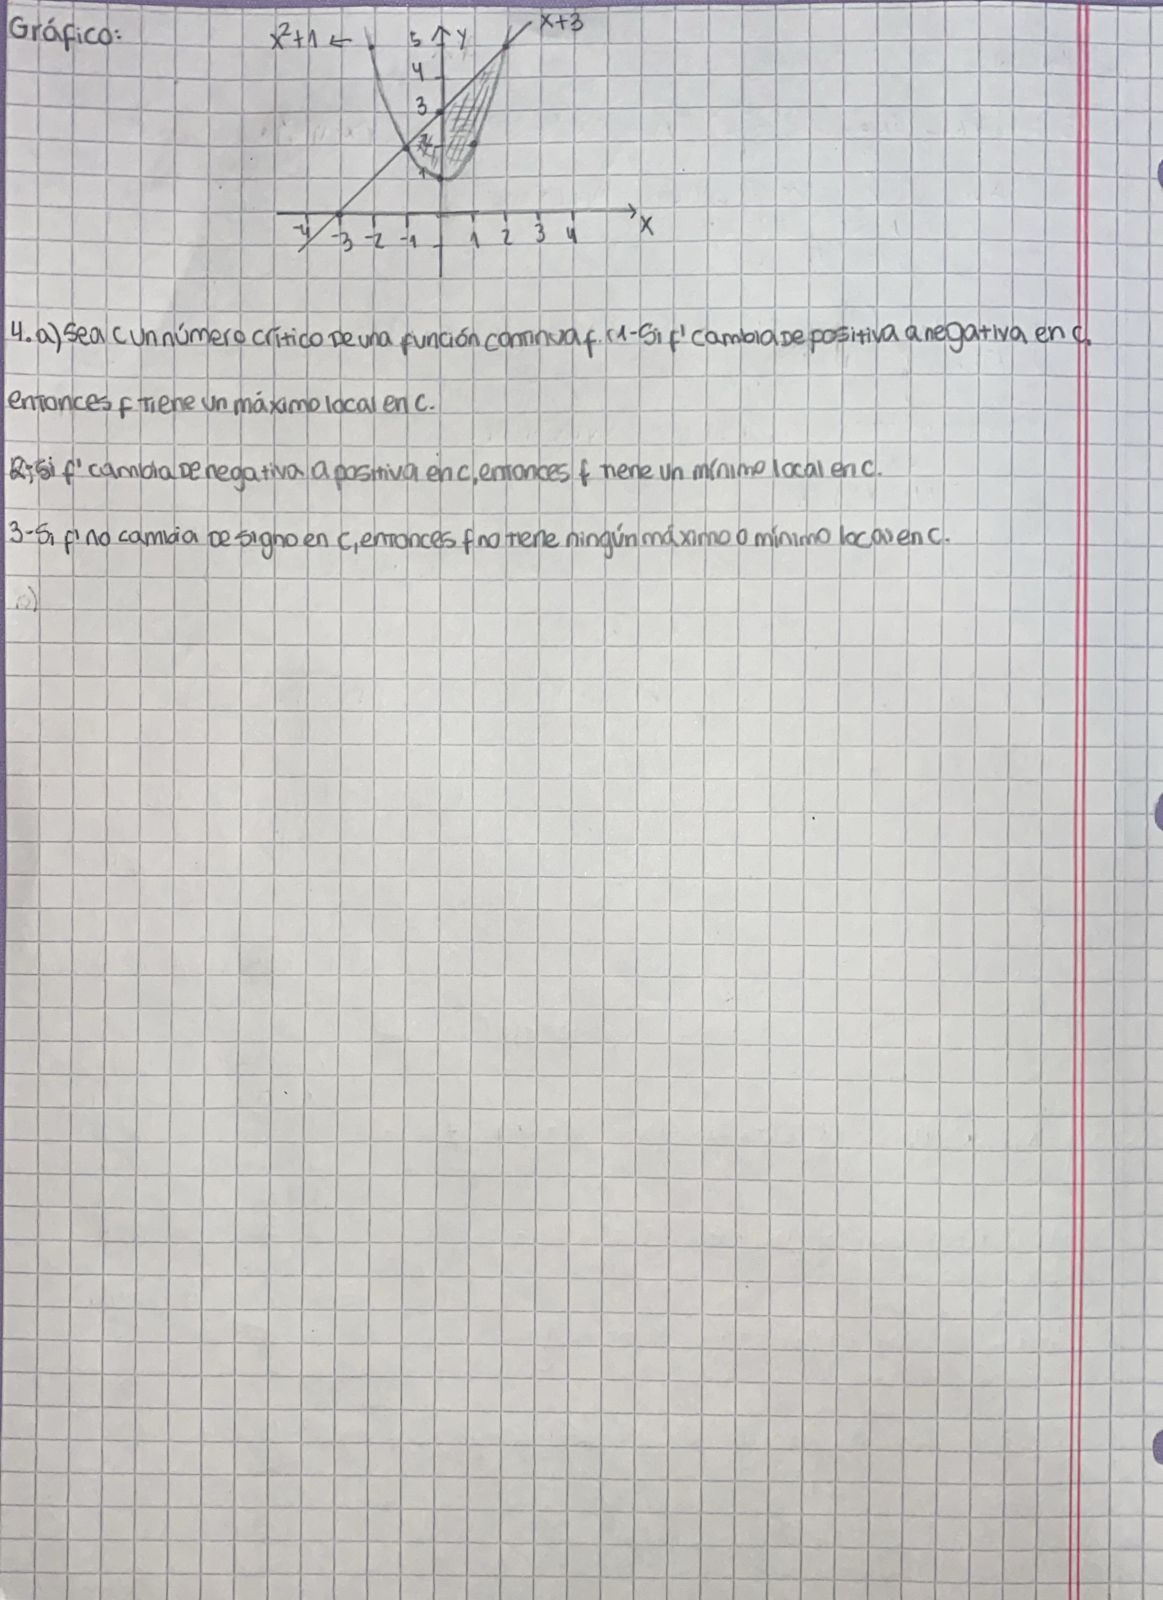 Gráfico:
x²+1 ←
5 ↑ y
x+3
4
3
2
1
-4 -3 -2 -1 1 2 3 4 x
4. a) Sea c un número crítico de una función continua f. (1-Si f' cambia de positiva a negativa en c,
entonces f tiene un máximo local en c.
2-Si f' cambia de negativa a positiva en c, entonces f tiene un mínimo local en c.
3-Si f' no cambia de signo en c, entonces f no tiene ningún máximo o mínimo local en c.